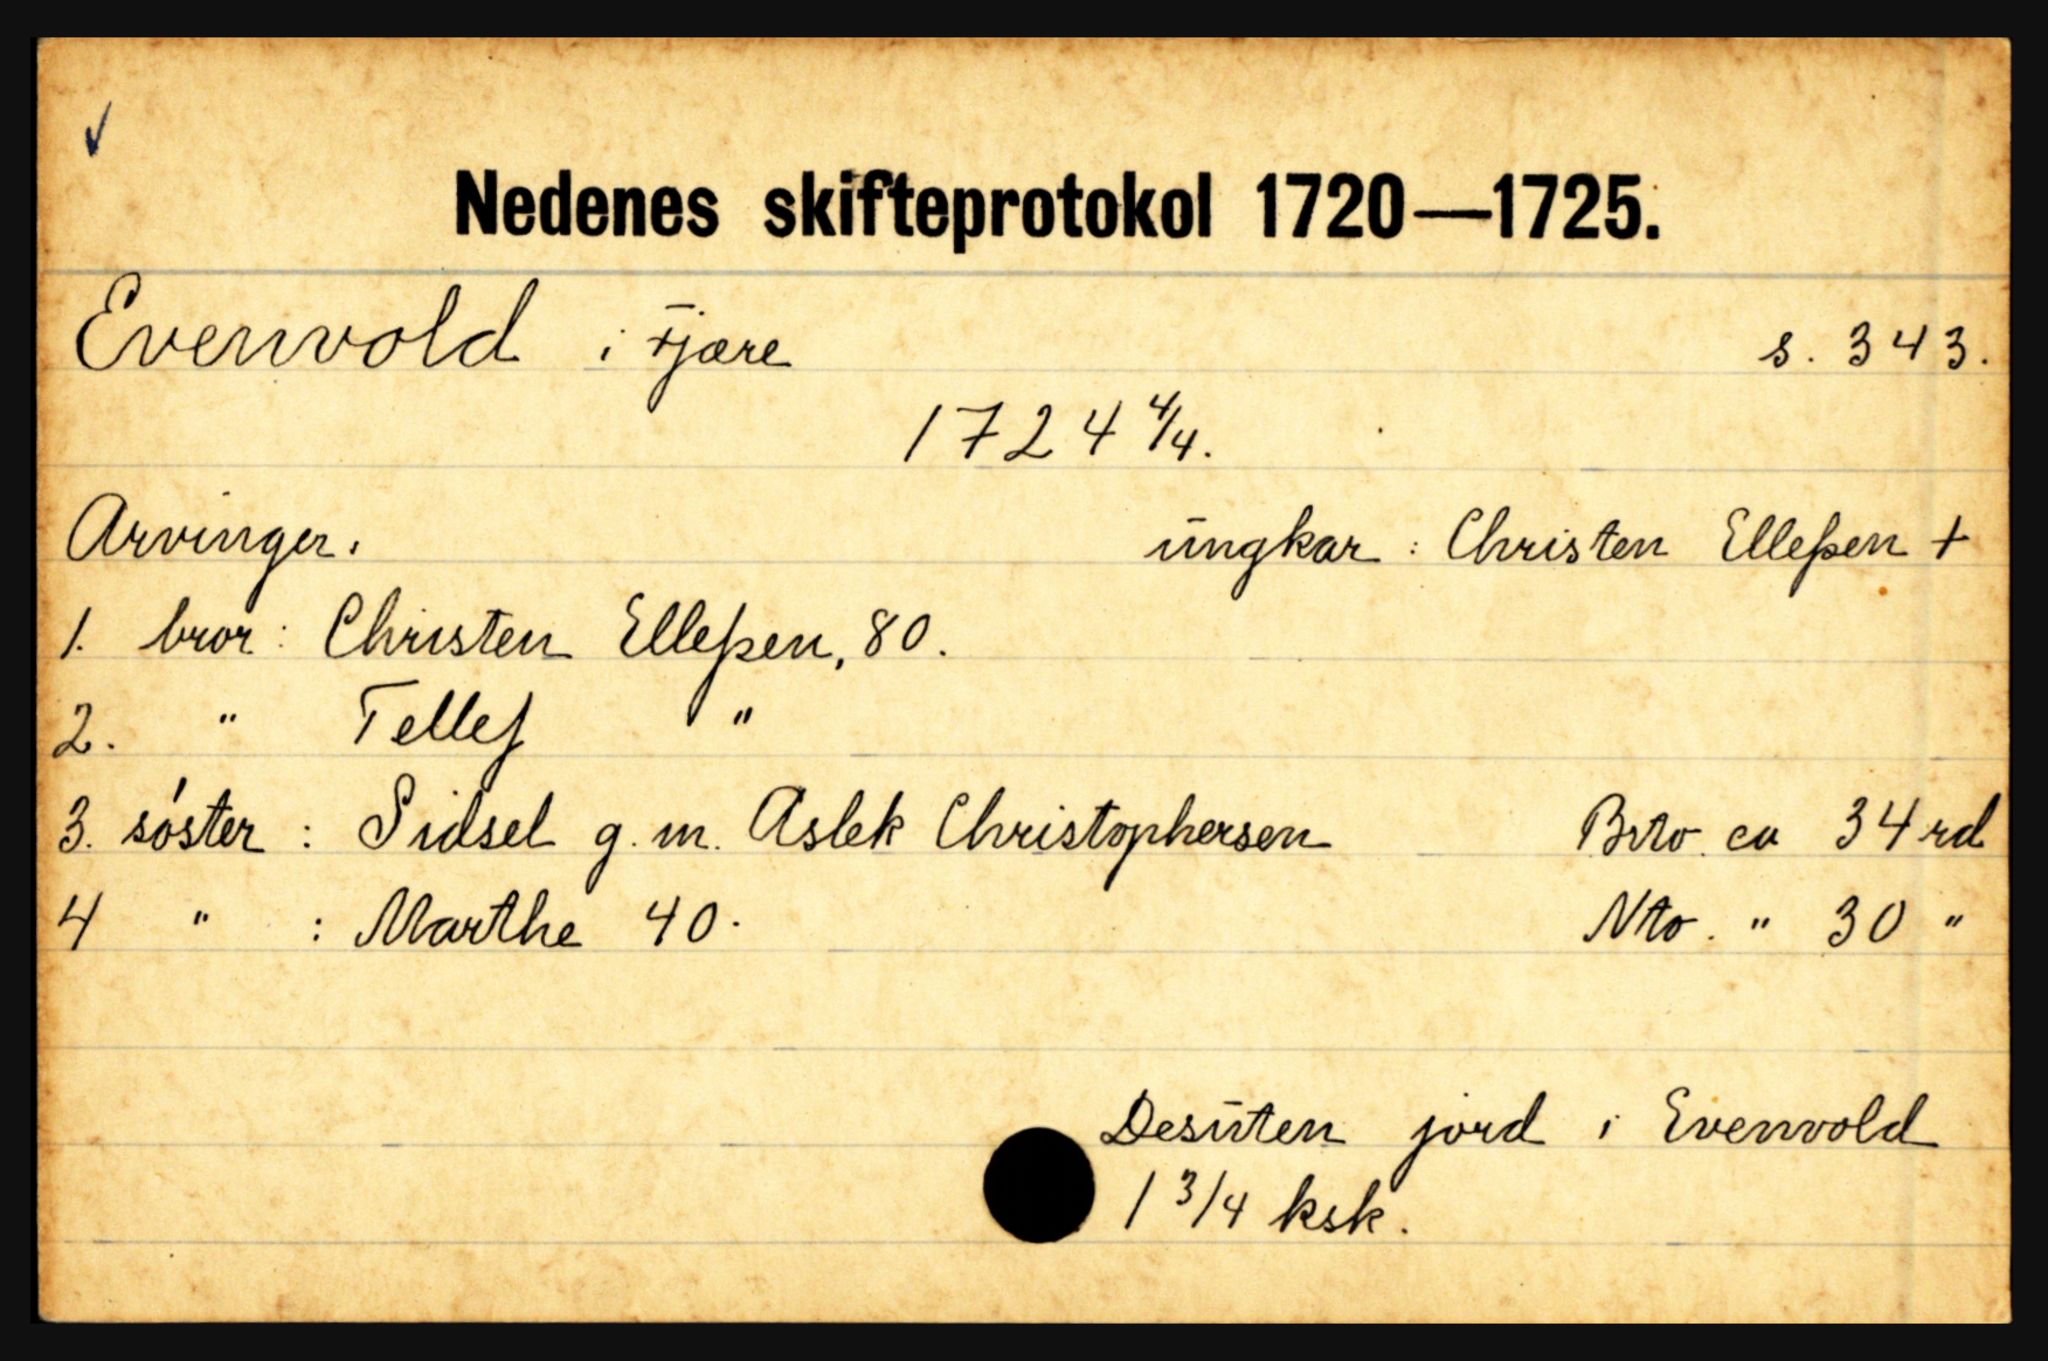 Nedenes skifteprotokol 1720—1725.
Evenvold i Fjære s. 343.
1724 4/4.
Arvinger. ungkar : Christen Elleßen +
1. bror : Christen Elleßen, 80.
2. " Tellef "
3. søster : Sidsel g. m. Aslek Christophersen Brto. ca 34 rd
4 " : Marthe 40. Nto. " 30 "
Desuten jord i Evenvold
1 3/4 ksk.